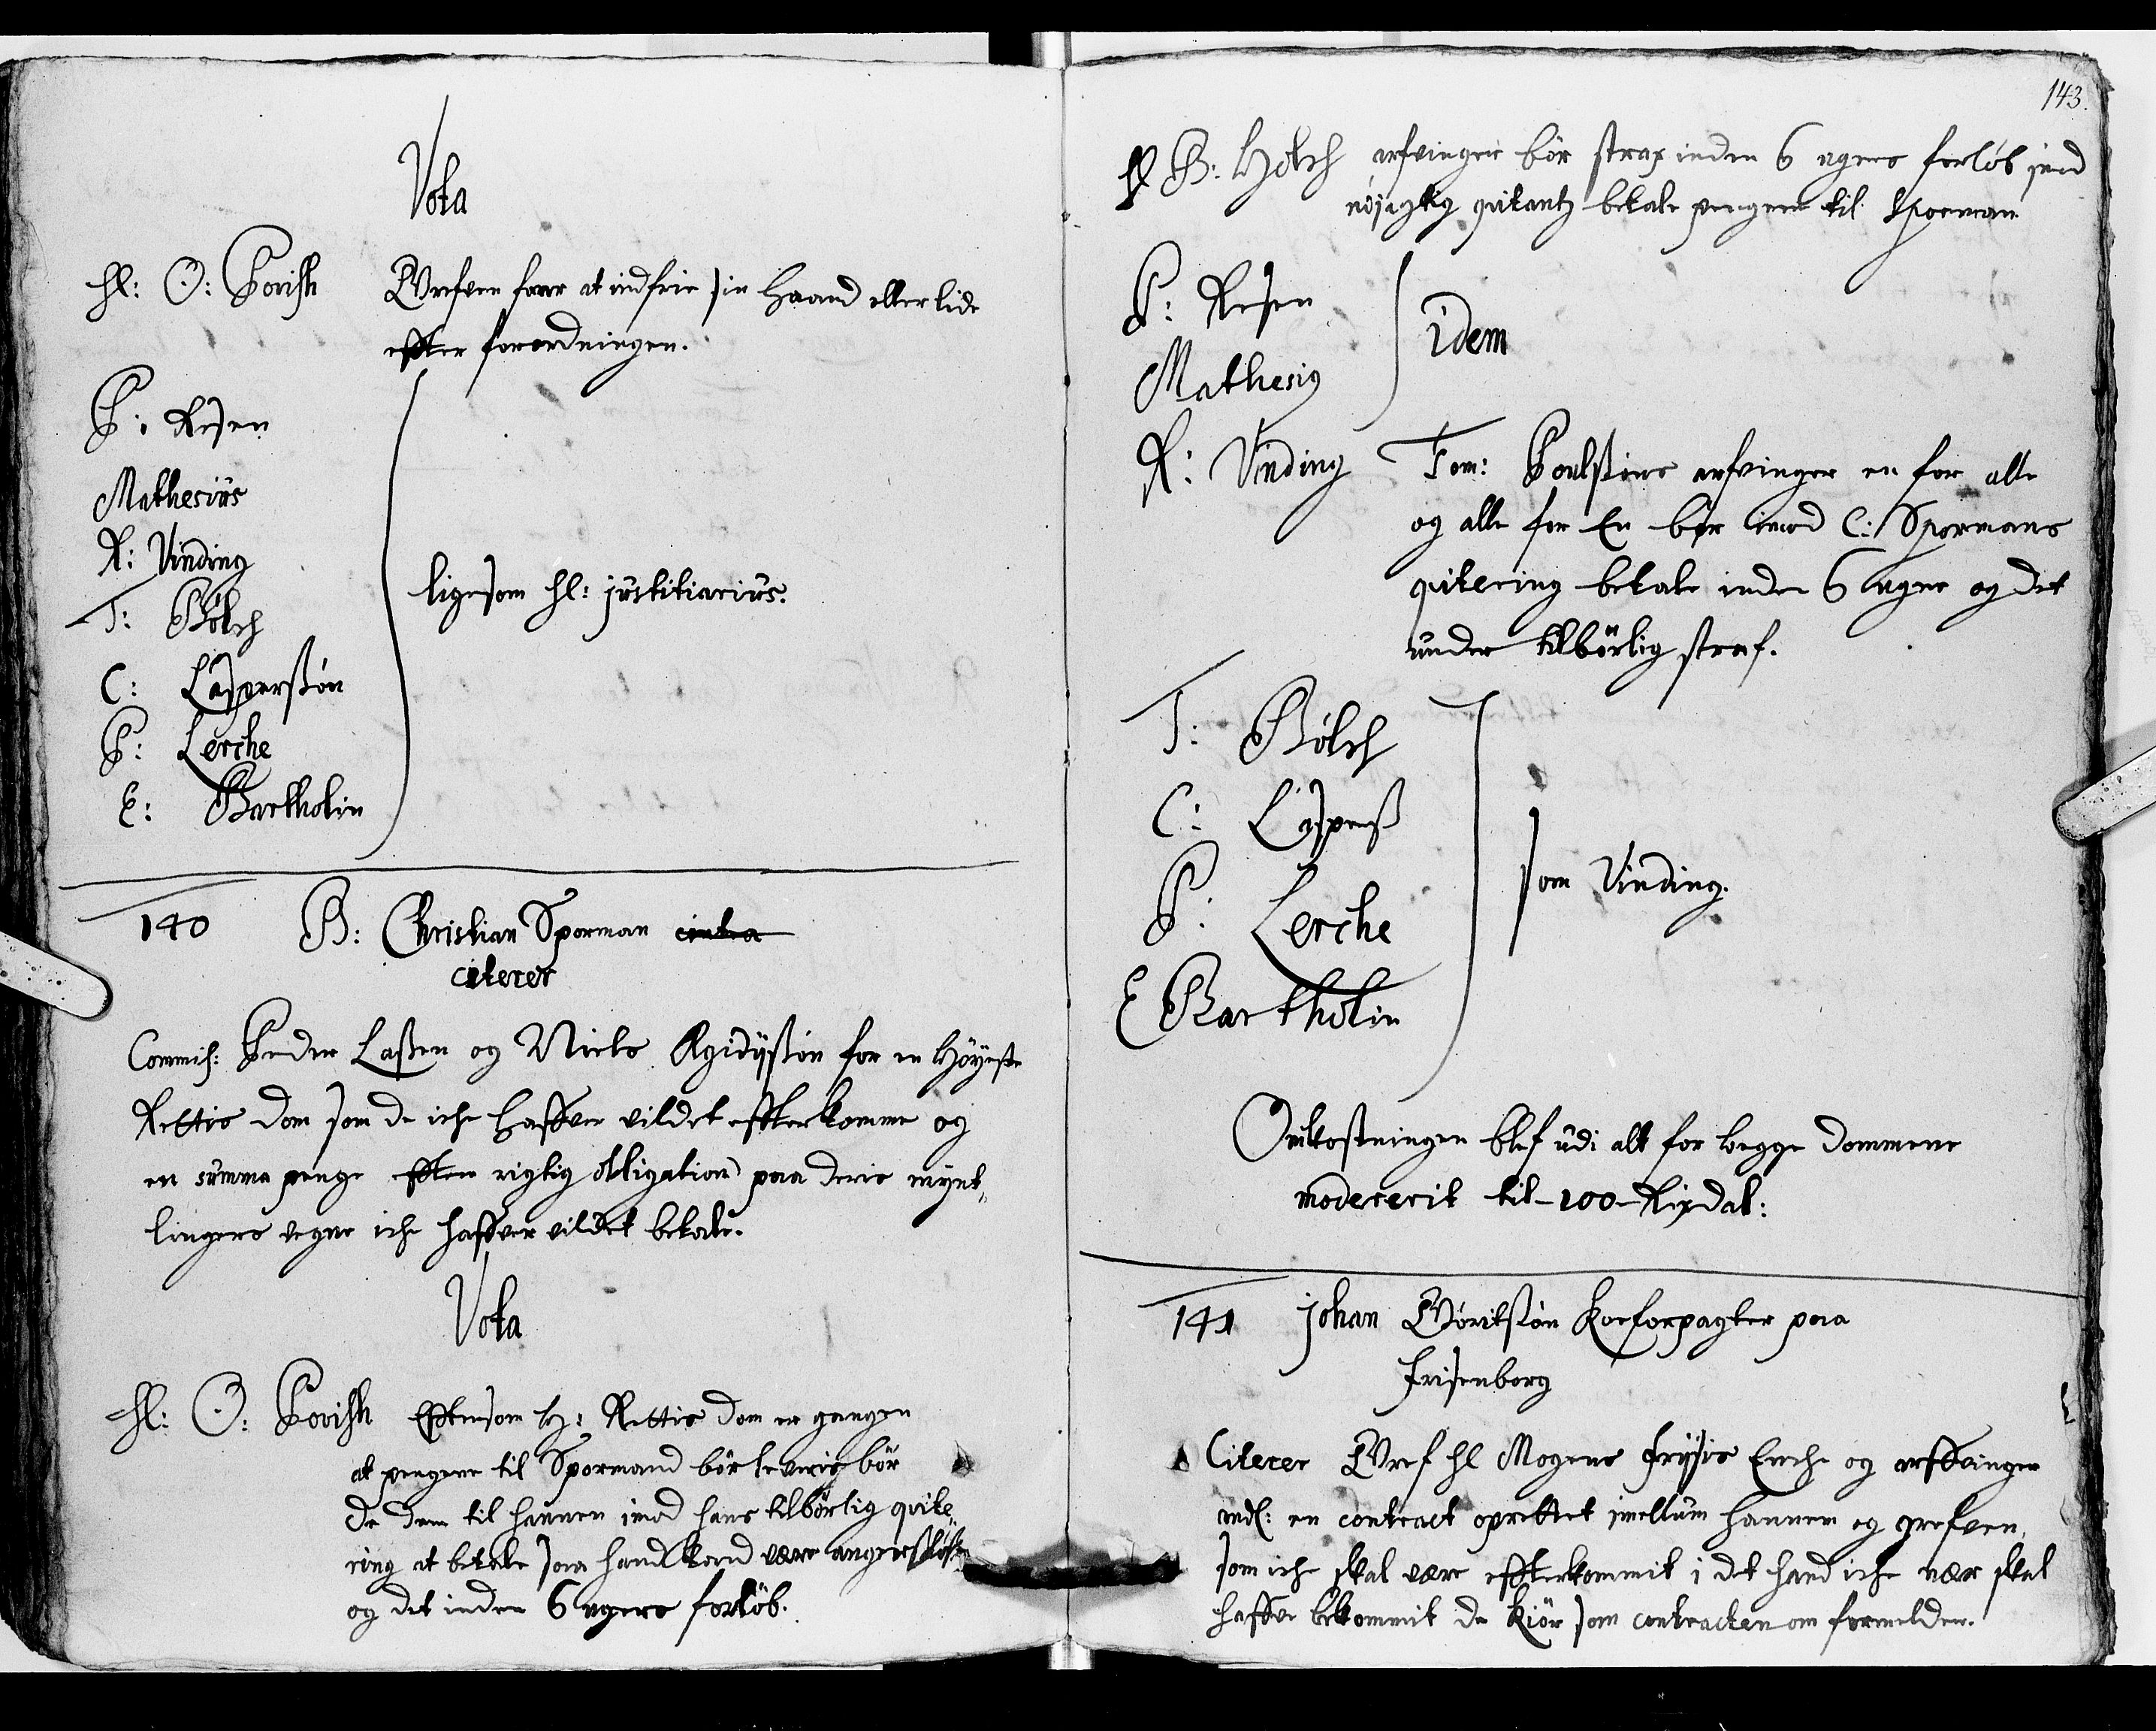 Vota
Hl: O: Povisk Grefven faar at indfrie sin Haand eller lide
effter forordningen.
P: Resen
Mathesius
R: Vinding
ligesom hl: justitiarius.
T: Bölch
C: Casperßön
P: Lerche
E: Bartholin
140 B: Christian Sporman contra
citerer
Commiss: Peder Laßen og Niels Egidyßön for en Höyeste
Rettis dom som de iche haffver vildet effterkomme og
en summa penge effter rigtig obligation paa deris mynt,,
lingers vegne iche haffver vildet betale.
Vota
Hl: O: Povisk Efftersom H: Rettis dom er gangen
at pengene til Spormand bör leveris bör
de dem til hannem imod hans tilbörlig quite,,
ring at betale saa hand kand være angerslöß
og det inden 6 ugers forlöb.
143.
H B: Holch arfvinger bör strax inden 6 ugers forlöb imod
nöjagtig qvitantz betale pengene til Sporman
P: Resen
idem
Mathesius
R: Vinding Tom: Poulsöns arfvinger en for alle
og alle for En bör imod C: Spormans
qvitering betale inden 6 uger og det
under tilbörlig straf.
T: Bölch
C: Casperß
som Vinding.
P: Lerche
E Bartholin
Omkostningen blef udi alt for begge dommene
modererit til 100 Rixdal:
141 johan Göritsön Koeforpagter paa
Frisenborg
Citerer Gref hl Mogens Frijsis Enche og arffvinger
andl: en contract oprettet imellum hannem og grefven,
som iche skal være effterkommit i det hand iche nær skal
haffve bekommit de Kiör som contracten om formelder.